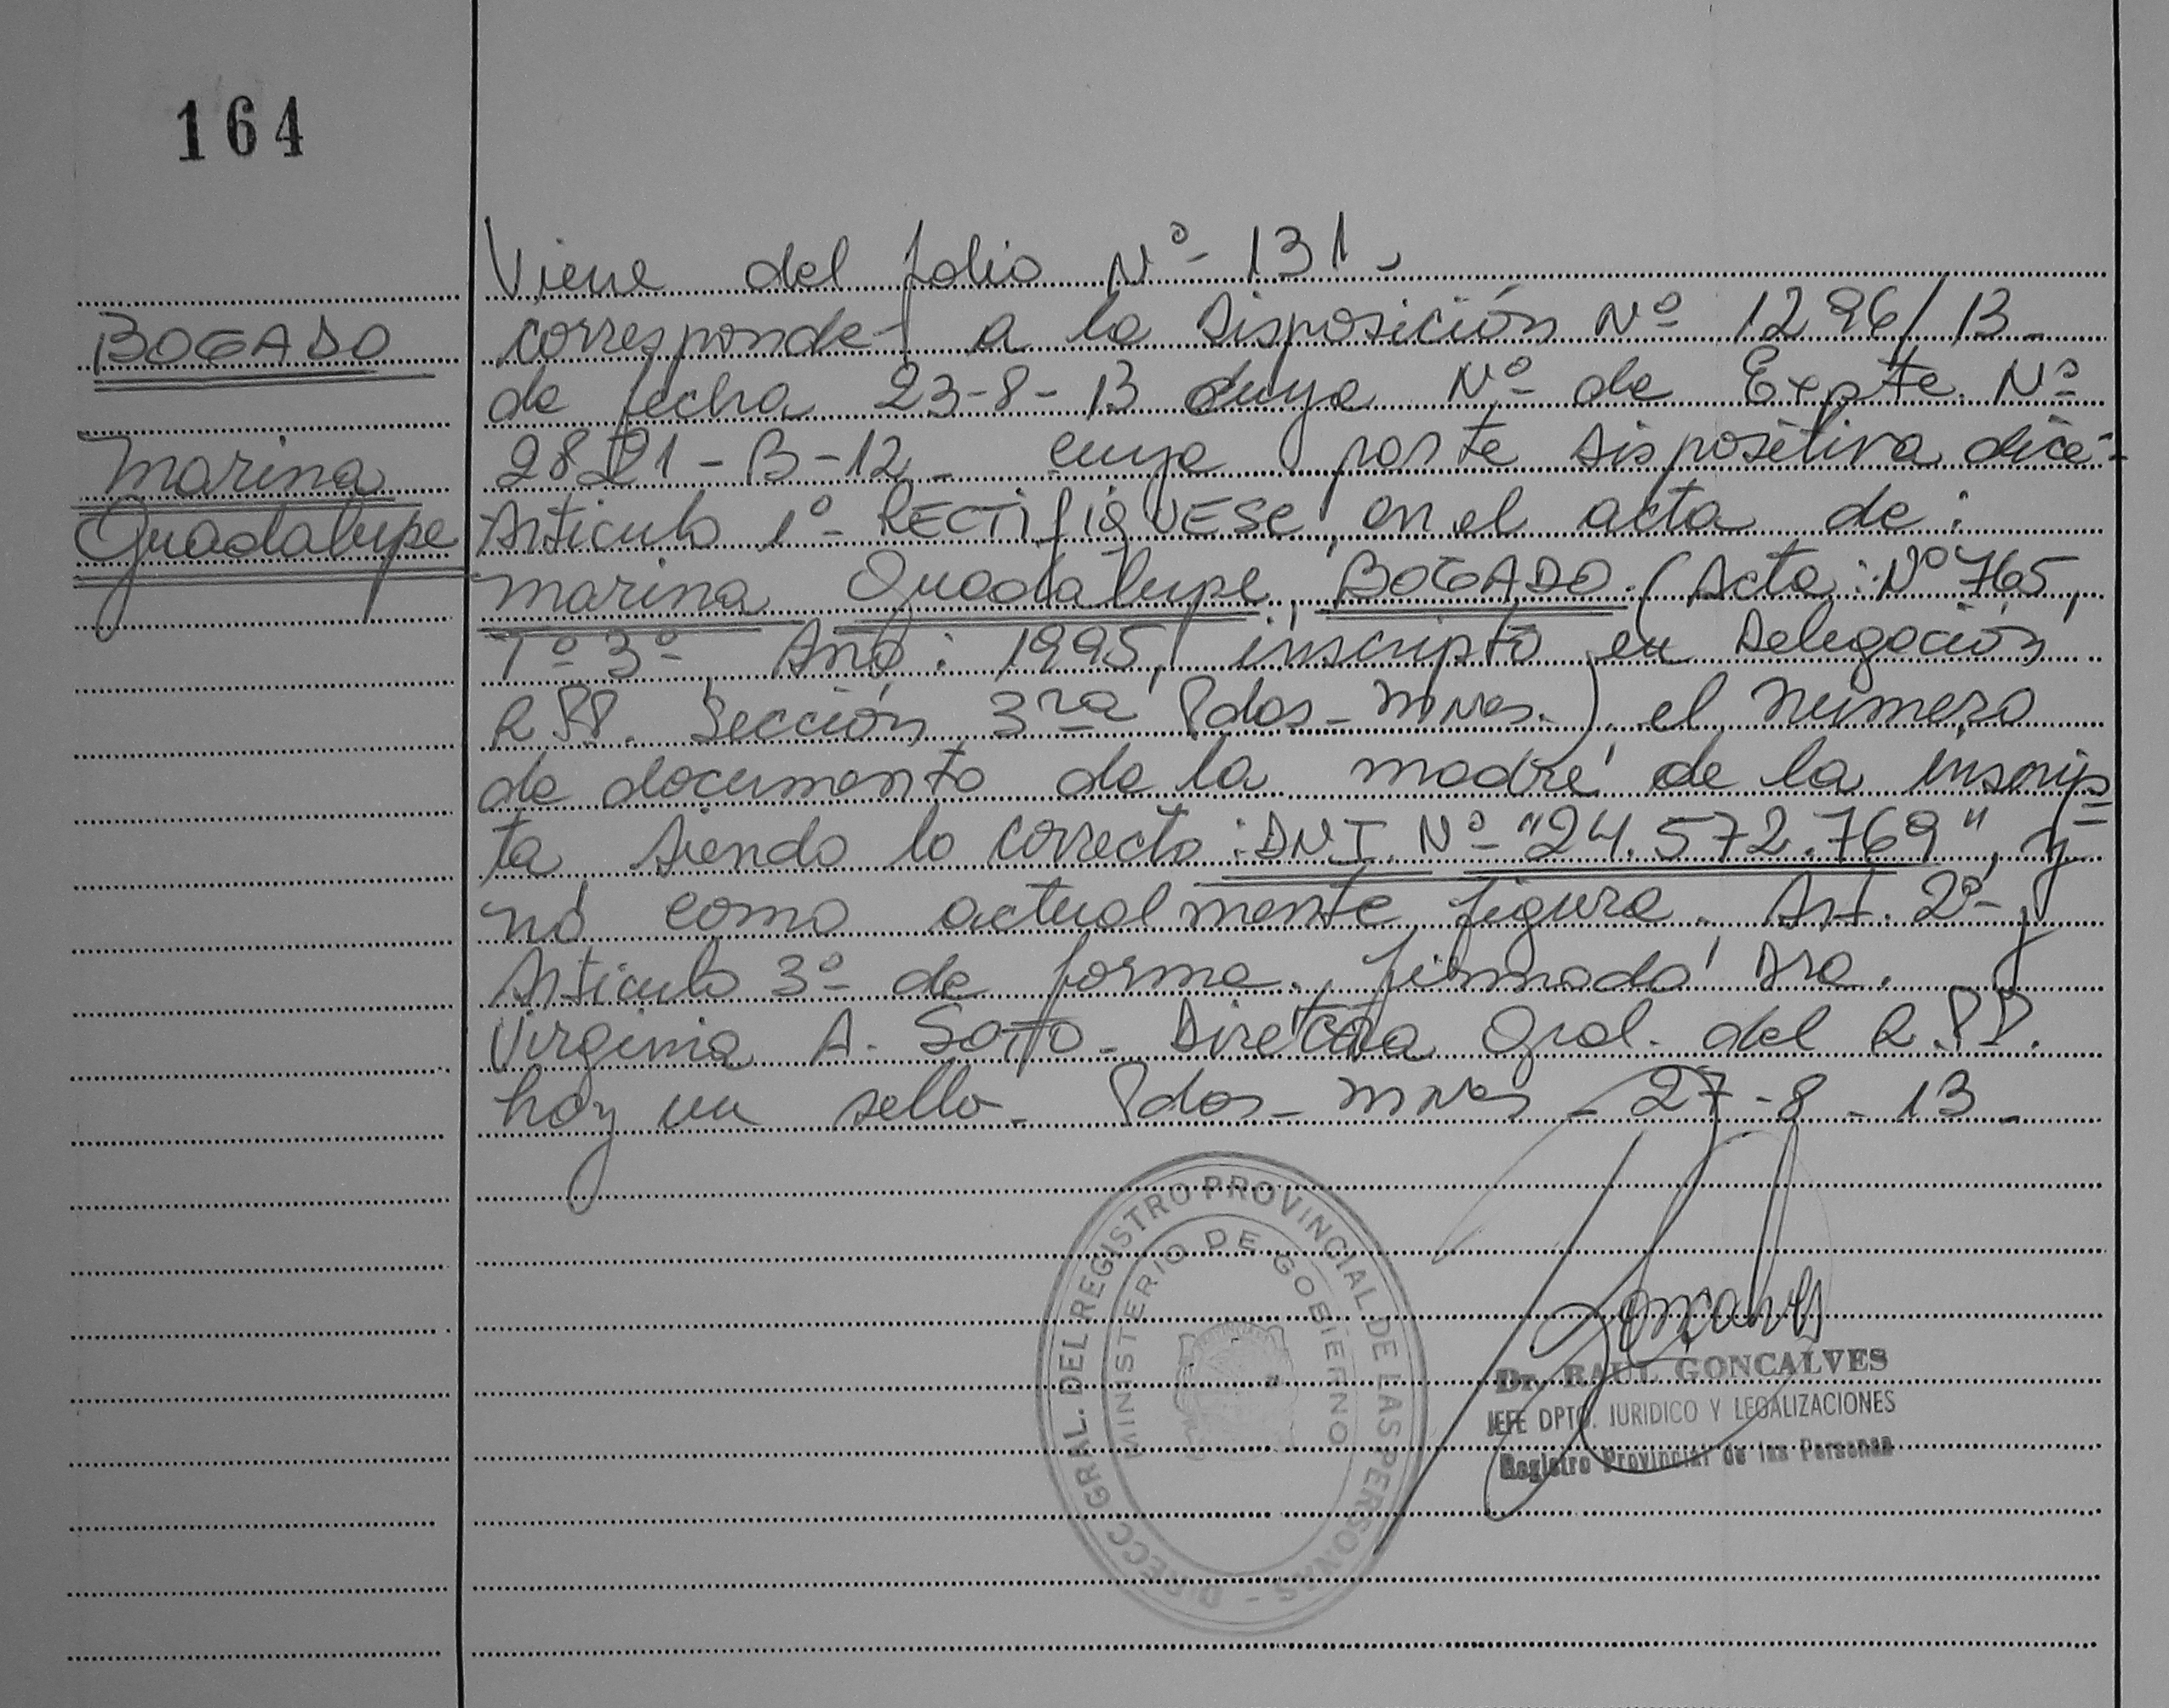 164
Viene del folio Nº- 131-
BOGADO
corresponde a la Disposición Nº 1296/13-
de fecha 23-8-13 cuya Nº- de Expte. Nº
Marina
2821-B-12- cuya parte dispositiva dice:
Guadalupe
Articulo 1º- RECTIFIQUESE, en el acta de:
Marina Guadalupe BOGADO. (Acta: Nº 765,
Tº 3º- Año: 1995, inscripto en Delegación
R.P.P. Sección 3ra Pdas-Mnes.-) el número
de documento de la madre de la inscrip=
ta siendo lo correcto: DNI. Nº- "24.572.769", y
nó como actualmente figura. Art. 2º- y
Articulo 3º- de forma. firmado Dra.
Virginia A. Soto- Directora Gral. del R.P.P.
hay un sello- Pdas-Mnes - 27-8-13-
DIRECC. GRAL. DEL REGISTRO PROVINCIAL DE LAS PERSONAS -
MINISTERIO DE GOBIERNO
Goncalves
Dr. RAUL GONCALVES
JEFE DPTO. JURIDICO Y LEGALIZACIONES
Registro Provincial de las Personas